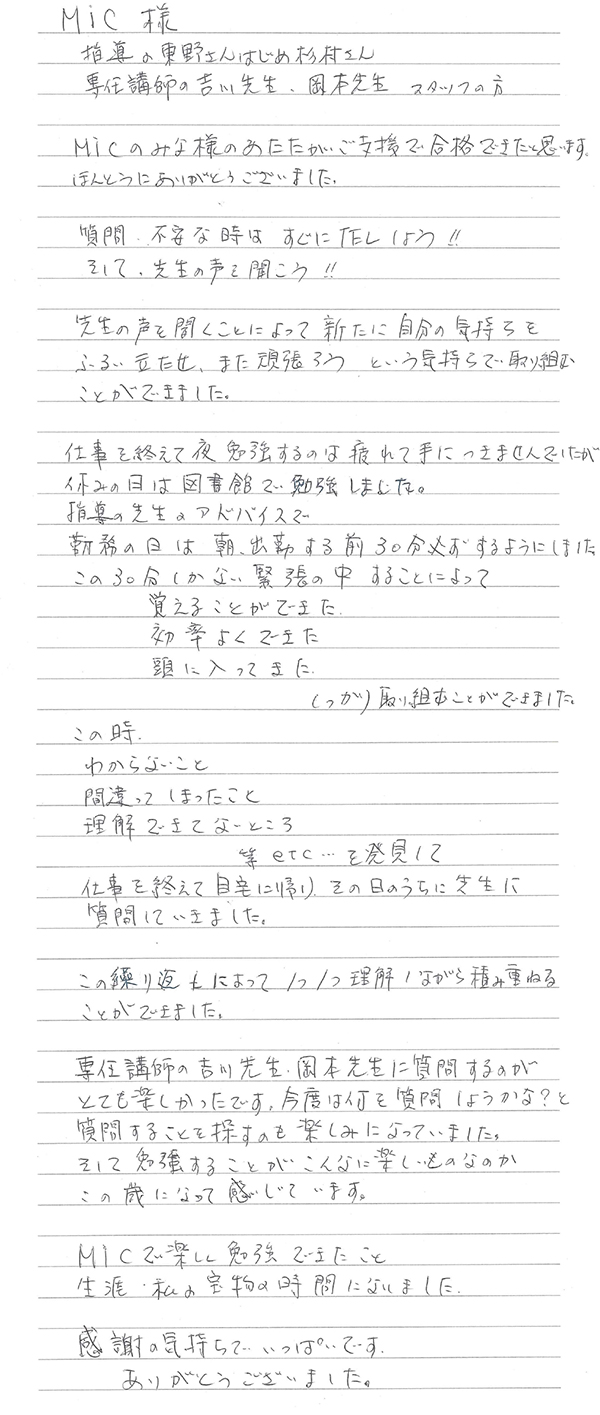 MIC 様
指導の東野さんはじめ杉村さん
専任講師の吉川先生、岡本先生 スタッフの方
MICのみな様のあたたかいご支援で合格できたと思います。
ほんとうにありがとうございました。
質問、不安な時は すぐにTELしよう!!
そして、先生の声を聞こう!!
先生の声を聞くことによって 新たに自分の気持ちを
ふるい立たせ、また頑張ろう という気持ちで取り組む
ことができました。
仕事を終えて夜 勉強するのは疲れて手につきませんでしたが
休みの日は図書館で勉強しました。
指導の先生のアドバイスで
勤務の日は 朝、出勤する前30分必ずするようにしました
この30分しかない緊張の中 することによって
覚えることができた。
効率よくできた
頭に入ってきた。
しっかり取り組むことができました。
この時、
わからないこと
間違ってしまったこと
理解できてないところ
等 etc…を発見して
仕事を終えて自宅に帰り、その日のうちに先生に
質問していきました。
この繰り返しによって 1つ1つ理解しながら積み重ねる
ことができました。
専任講師の吉川先生、岡本先生に質問するのが
とても楽しかったです。今度は何を質問しようかな?と
質問することを探すのも楽しみになっていました。
そして勉強することがこんなに楽しいものなのか
この歳になって感じています。
MICで楽しく勉強できたこと
生涯、私の宝物の時間になりました。
感謝の気持ちでいっぱいです。
ありがとうございました。